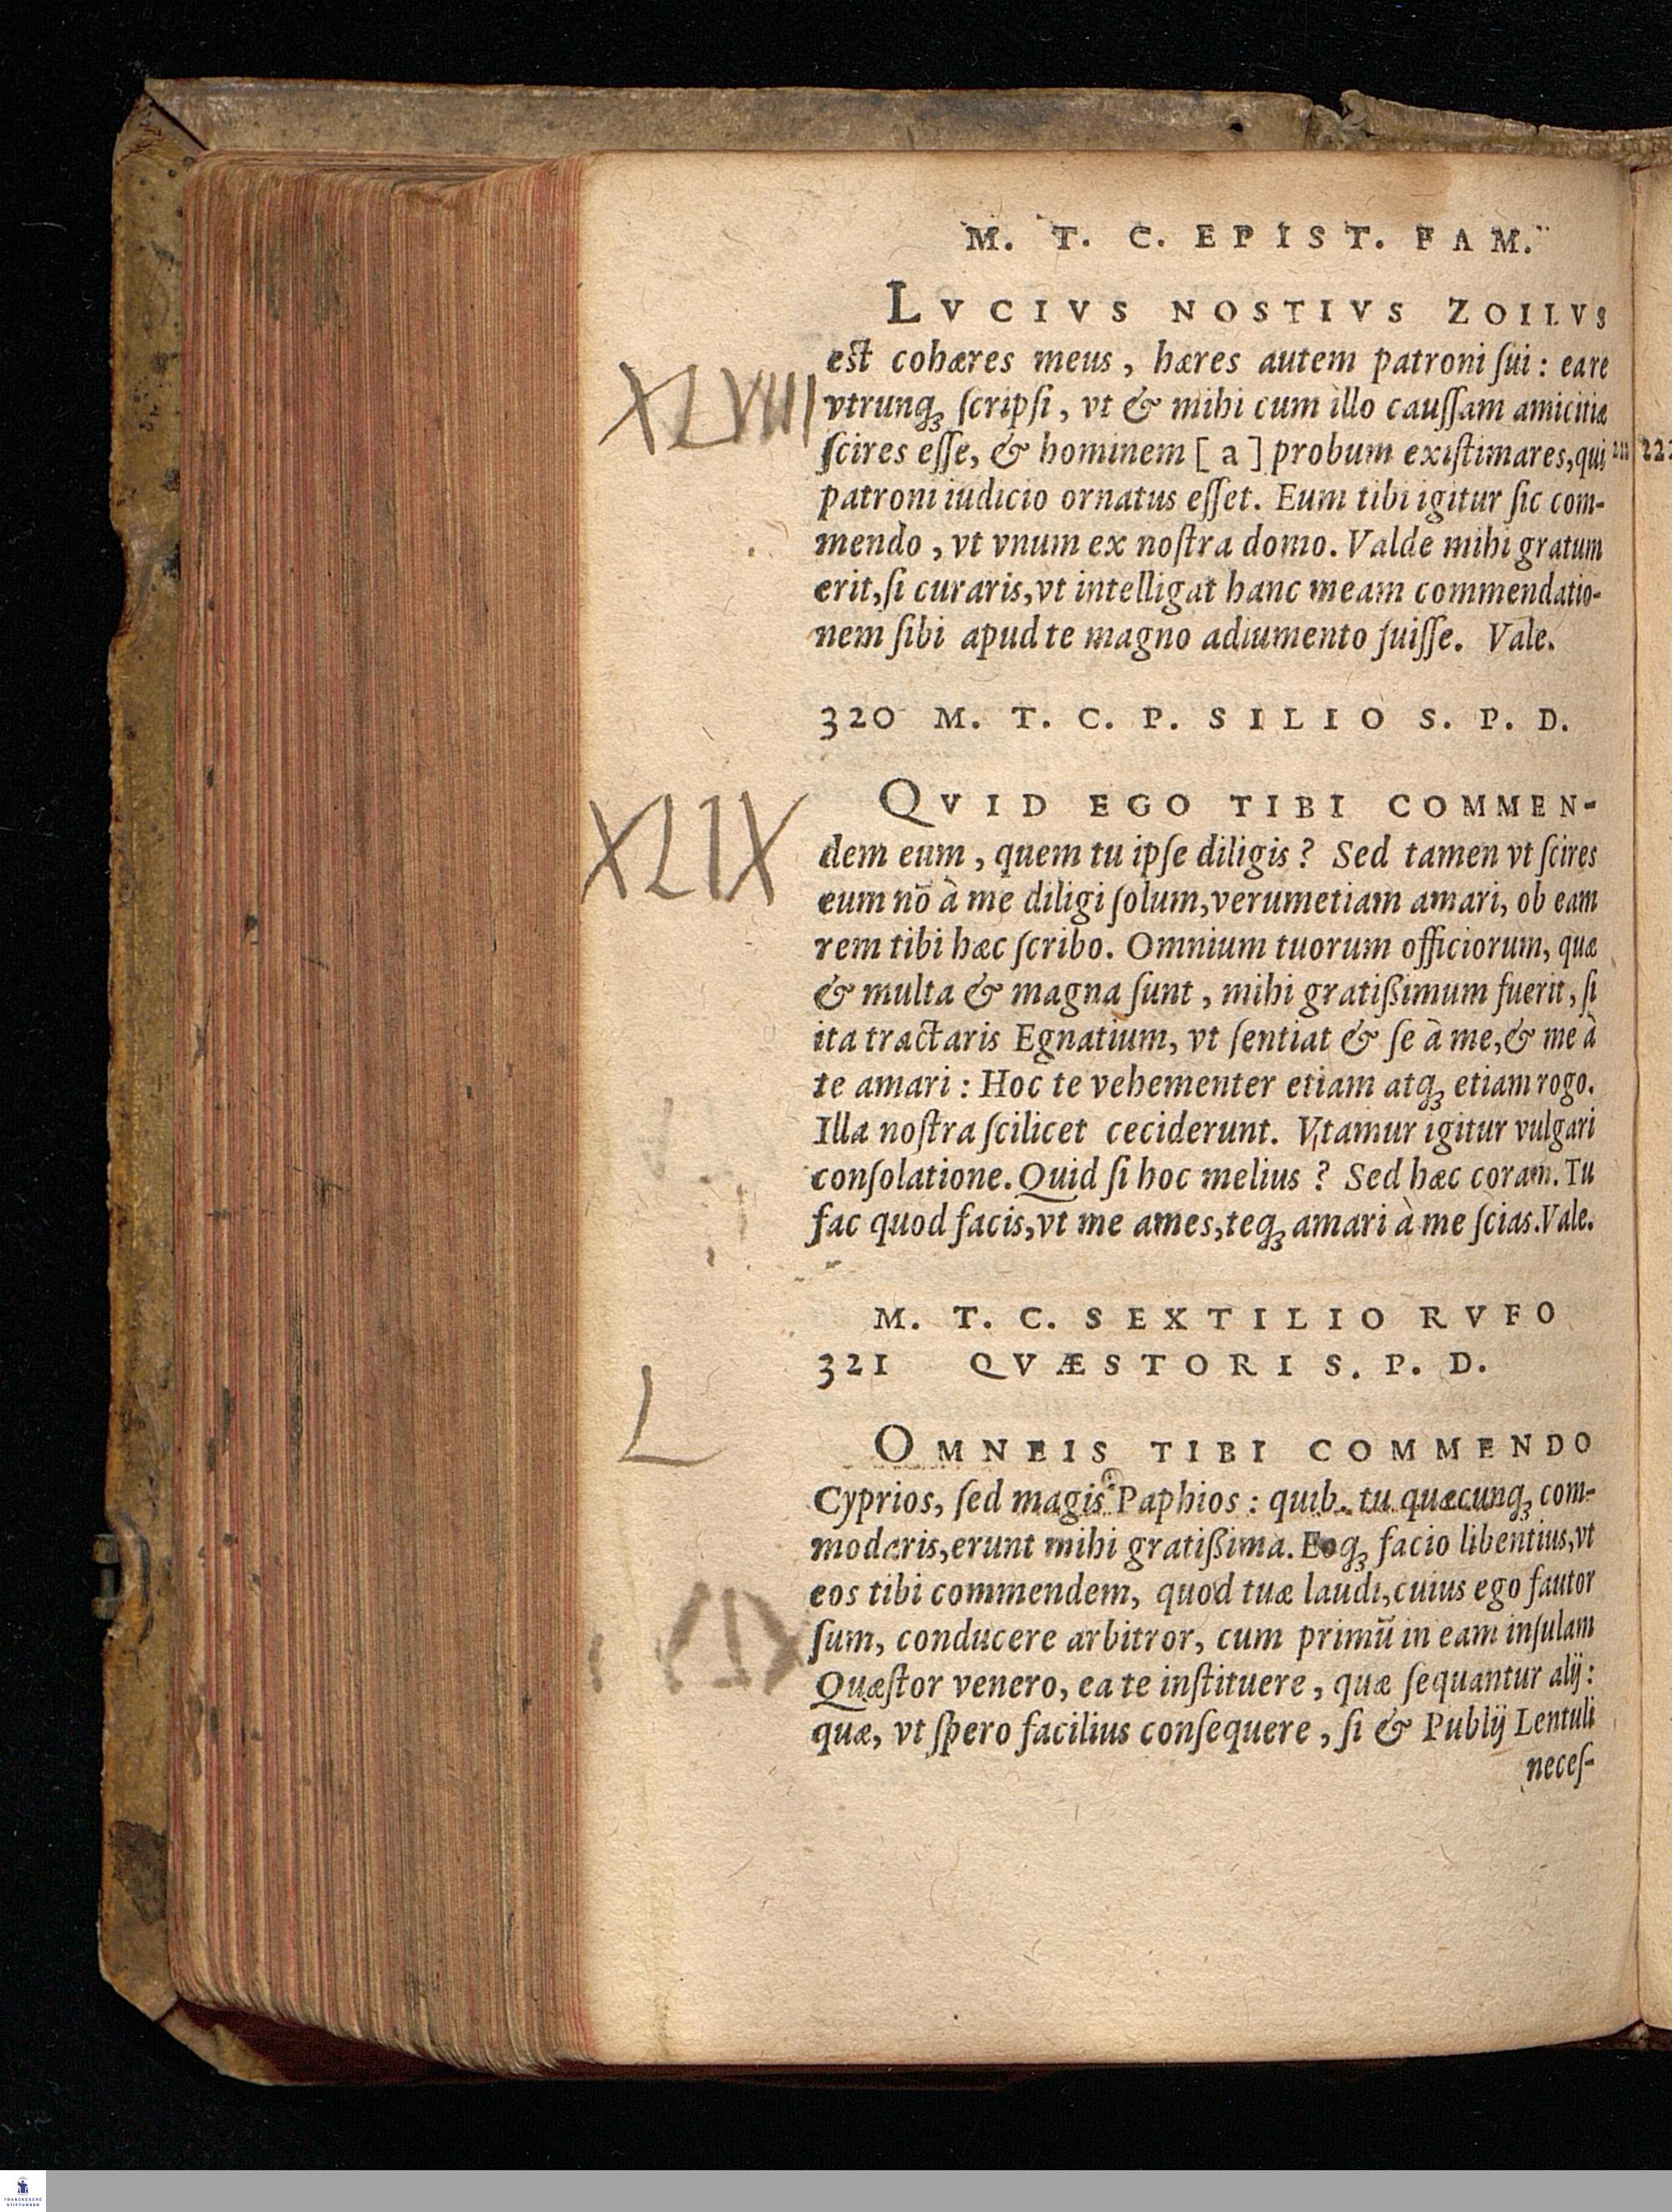 M. T. C. EPIST. FAM.
LVCIVS NOSTIVS ZOILVS
est cohæres meus, hæres autem patroni ſui: eare
XLVIII
vtrunqꝫ ſcripſi, vt & mihi cum illo cauſſam amicitiæ
ſcires eſſe, & hominem [a] probum exiſtimares, qui
patroni iudicio ornatus eſſet. Eum tibi igitur ſic com-
mendo, vt vnum ex noſtra domo. Valde mihi gratum
erit, ſi curaris, vt intelligat hanc meam commendatio-
nem ſibi apud te magno adiumento fuiſſe. Vale.
320 M. T. C. P. SILIO S. P. D.
QVID EGO TIBI COMMEN-
XLIX
dem eum, quem tu ipſe diligis? Sed tamen vt ſcires
eum nō à me diligi ſolum, verumetiam amari, ob eam
rem tibi hæc ſcribo. Omnium tuorum officiorum, quæ
& multa & magna ſunt, mihi gratißimum fuerit, ſi
ita tractaris Egnatium, vt ſentiat & ſe à me, & me à
te amari: Hoc te vehementer etiam atqꝫ etiam rogo.
Illa noſtra ſcilicet ceciderunt. Vtamur igitur vulgari
conſolatione. Quid ſi hoc melius? Sed hæc coram. Tu
fac quod facis, vt me ames, teqꝫ amari à me ſcias. Vale.
M. T. C. SEXTILIO RVFO
321 QVÆSTORI S. P. D.
L
OMNEIS TIBI COMMENDO
Cyprios, ſed magis Paphios: quib. tu quæcunqꝫ com-
modaris, erunt mihi gratißima. Eoqꝫ facio libentius, vt
eos tibi commendem, quod tuæ laudi, cuius ego fautor
ſum, conducere arbitror, cum primū in eam inſulam
Quæſtor venero, ea te inſtituere, quæ ſequantur alij:
quæ, vt ſpero facilius conſequere, ſi & Publij Lentuli
neceſ-
FRANCKESCHE
STIFTUNGEN